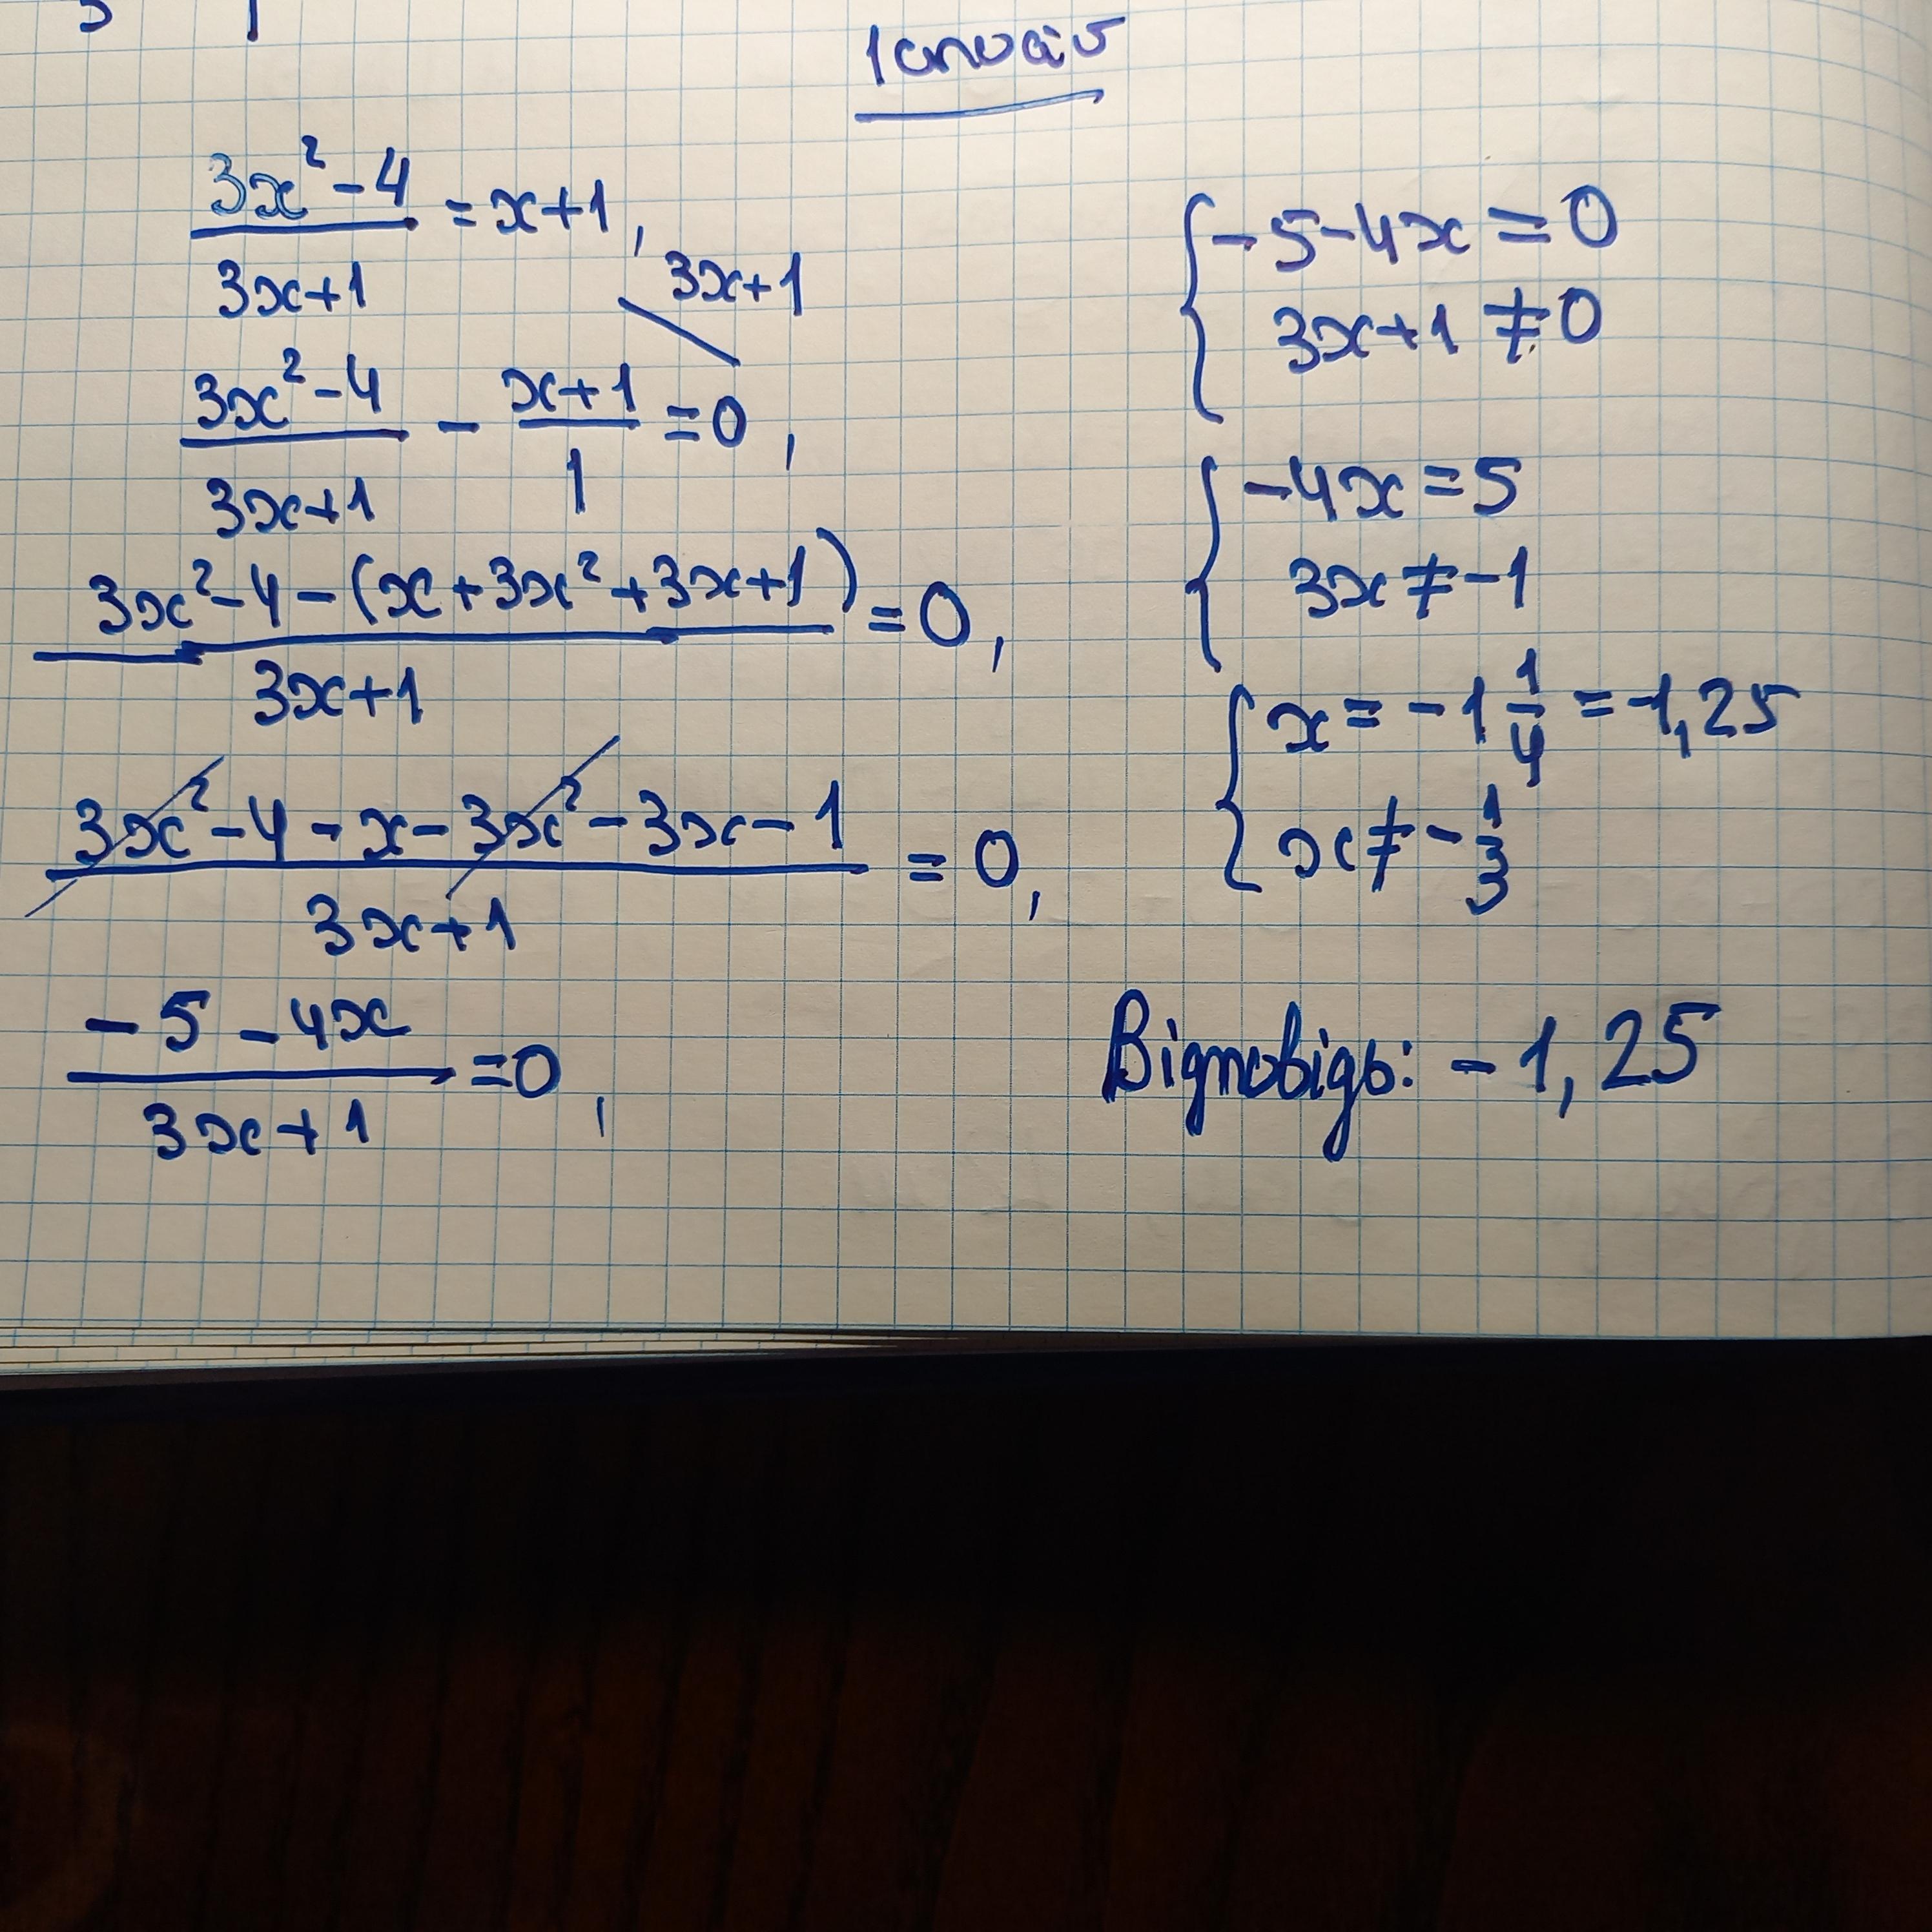 1 спосіб
3x² - 4 / 3x+1 = x+1,
3x+1
3x² - 4 / 3x+1 - x+1 / 1 = 0,
3x² - 4 - (x + 3x² + 3x + 1) / 3x+1 = 0,
3x² - 4 - x - 3x² - 3x - 1 / 3x+1 = 0,
- 5 - 4x / 3x+1 = 0,
{ - 5 - 4x = 0
3x+1 ≠ 0
{ - 4x = 5
3x ≠ - 1
{ x = - 1 1/4 = -1,25
x ≠ - 1/3
Відповідь: - 1,25